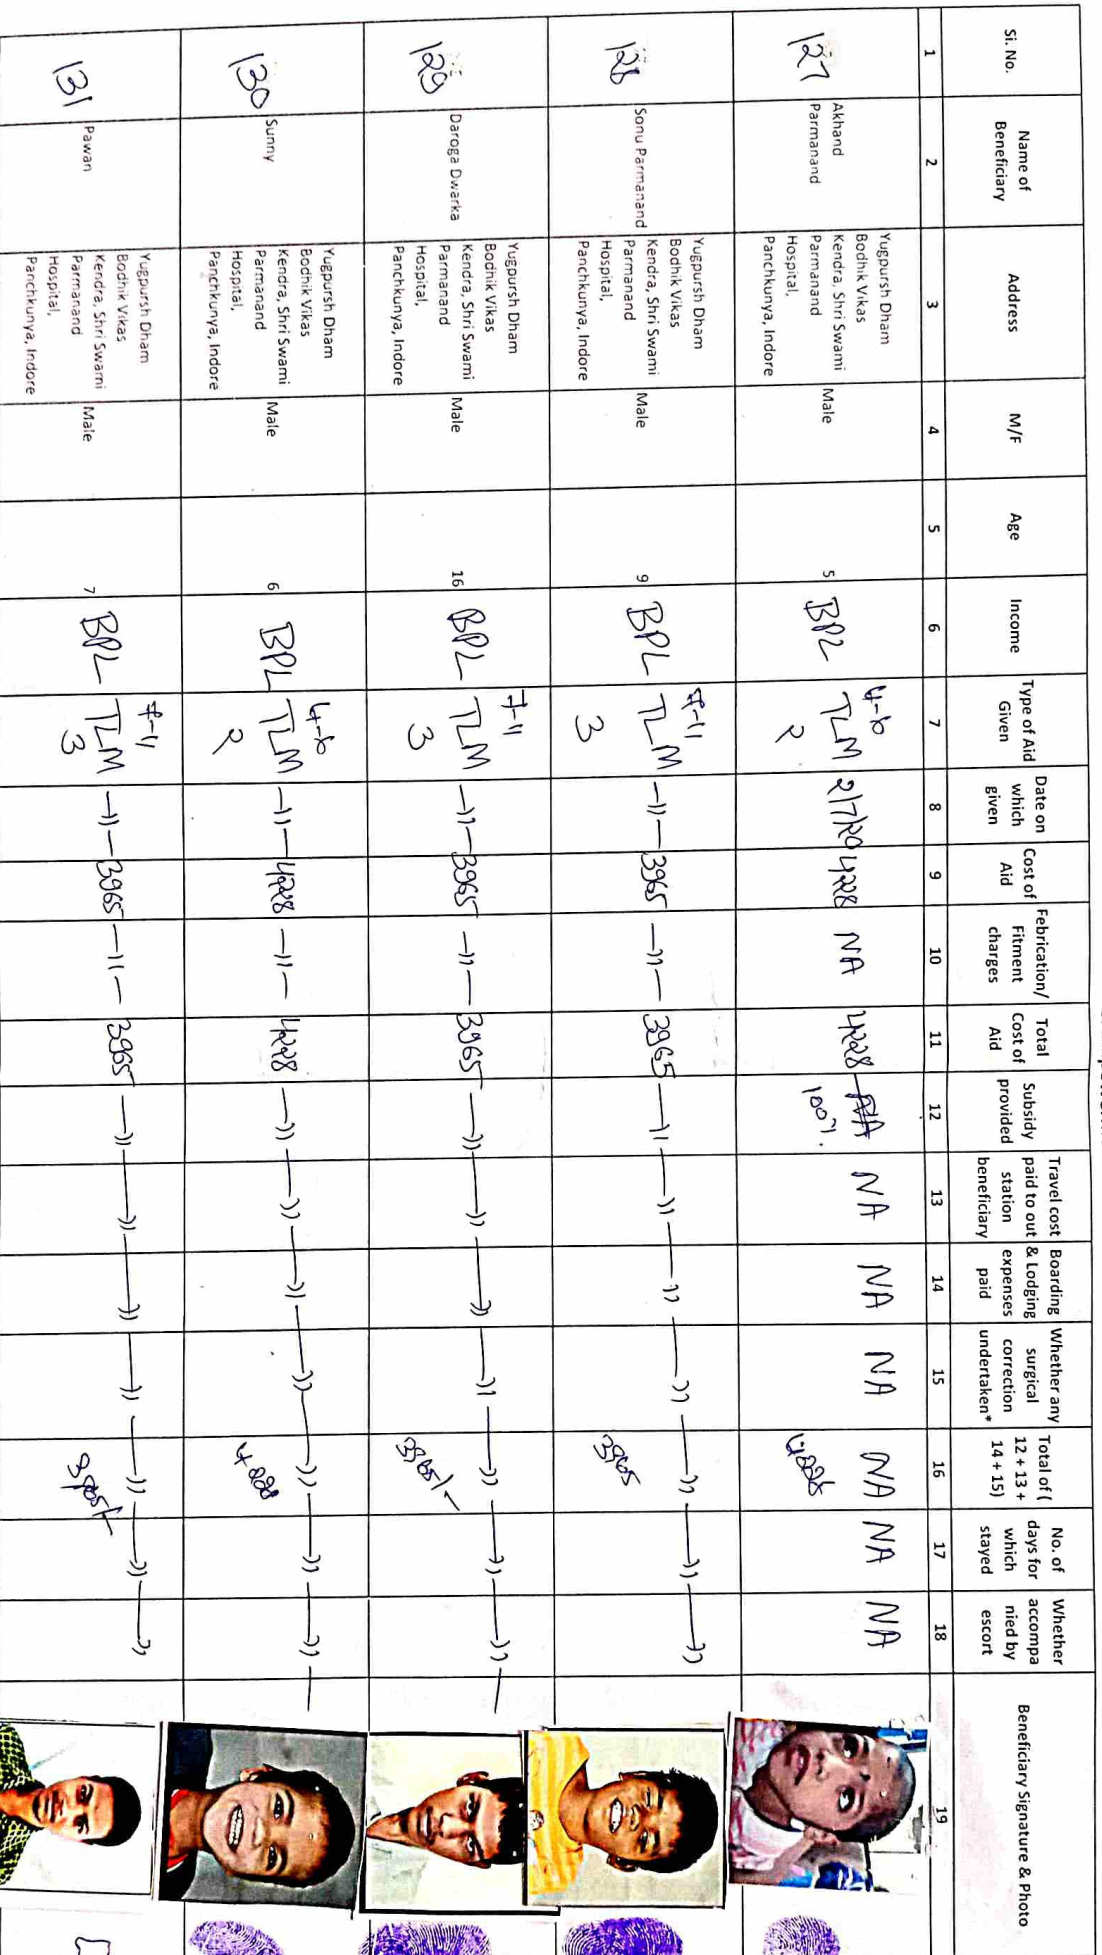 Si. No.
Name of
Beneficiary
Address
M/F
Age
Income
Type of Aid
Given
Date on
which
given
Cost of
Aid
Febrication/
Fitment
charges
Total
Cost of
Aid
Subsidy
provided
Travel cost
paid to out
station
beneficiary
Boarding
& Lodging
expenses
paid
Whether any
surgical
correction
undertaken*
Total of (
12 + 13 +
14 + 15)
No. of
days for
which
stayed
Whether
accompa
nied by
escort
Beneficiary Signature & Photo
1 2 3 4 5 6 7 8 9 10 11 12 13 14 15 16 17 18 19
127
Akhand
Parmanand
Yugpursh Dham
Bodhik Vikas
Kendra, Shri Swami
Parmanand
Hospital,
Panchkunya, Indore
Male
5
BPL
4-6
TLM
2
2/7/20
4228
NA
4228
NA
100%.
NA
NA
NA
NA
4228
NA
NA
128
Sonu Parmanand
Yugpursh Dham
Bodhik Vikas
Kendra, Shri Swami
Parmanand
Hospital,
Panchkunya, Indore
Male
9
BPL
7-11
TLM
3
-11-
3965
-11-
3965
-11- -11- -11- -11- -11- -11- -11-
3965
129
Daroga Dwarka
Yugpursh Dham
Bodhik Vikas
Kendra, Shri Swami
Parmanand
Hospital,
Panchkunya, Indore
Male
16
BPL
7-11
TLM
3
-11-
3965
-11-
3965
-11- -11- -11- -11- -11- -11- -11-
3965/-
130
Sunny
Yugpursh Dham
Bodhik Vikas
Kendra, Shri Swami
Parmanand
Hospital,
Panchkunya, Indore
Male
6
BPL
4-6
TLM
2
-11-
4228
-11-
4228
-11- -11- -11- -11- -11- -11- -11-
4228
131
Pawan
Yugpursh Dham
Bodhik Vikas
Kendra, Shri Swami
Parmanand
Hospital,
Panchkunya, Indore
Male
7
BPL
7-11
TLM
3
-11-
3965
-11-
3965
-11- -11- -11- -11- -11- -11- -11-
3965/-